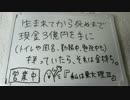 生まれてから死ぬまで
現金3億円を手に
(トイレや風呂、勤務中も、勉強中も)
持っていたら、それは金持ち。
営業中
「私は東大理三